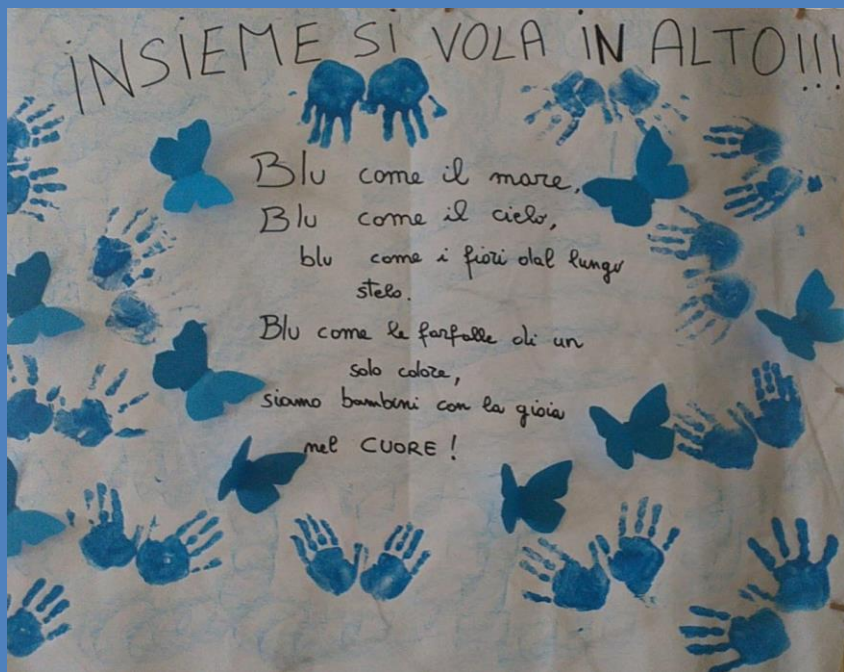 INSIEME SI VOLA IN ALTO!!!
Blu come il mare,
Blu come il cielo,
blu come i fiori dal lungo
stelo.
Blu come le farfalle di un
solo colore,
siamo bambini con la gioia
nel CUORE!